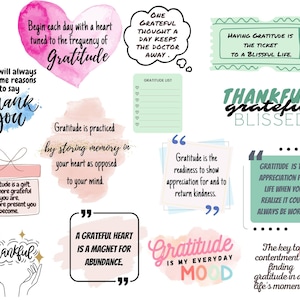 Begin each day with a heart
tuned to the frequency of
Gratitude
ONE
GRATEFUL
THOUGHT A
DAY KEEPS
THE DOCTOR
AWAY
HAVING GRATITUDE IS
THE TICKET
TO A BLISSFUL LIFE.
will always
me reasons
to say
thank
you
GRATITUDE LIST
THANKFUL
grateful
BLESSED
Gratitude is practiced
by storing memory in
your heart as opposed
to your mind.
Gratitude is the
readiness to show
appreciation for and to
return kindness.
GRATITUDE IS T
APPRECIATION F
LIFE WHEN YOU
REALIZE IT COU
ALWAYS BE WOR
titude is a gift,
more grateful
you are,
ore present you
become.
thankful
A GRATEFUL HEART
IS A MAGNET FOR
ABUNDANCE.
Gratitude
IS MY EVERYDAY
MOOD
The key to
contentment
finding
gratitude in a
life's momen